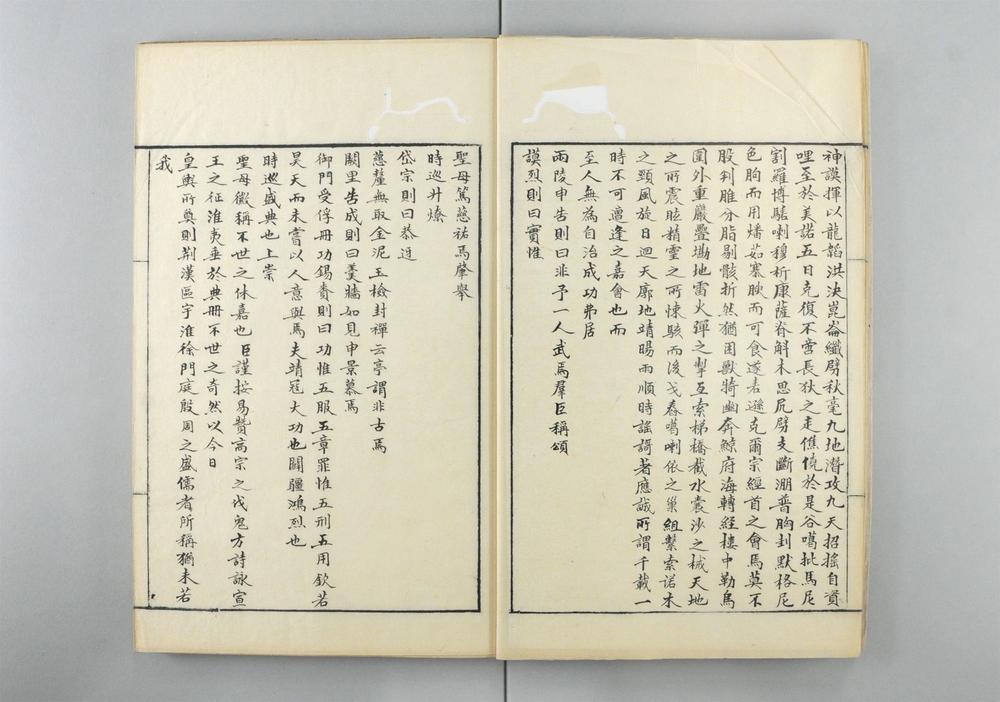 神謨揮以龍韜洪決崑崙纖劈秋毫九地潛攻九天招搖自資
哩至於美諾五日克復不啻長狄之走僬僥於是谷噶批馬尼
割羅博駱喇穆析康薩脊斛木思尻劈支斷淜普胸刲默格尼
色朐而用燔茹寨腴而可食遂克遜克爾宗經首之會焉莫不
股判脽分脂剔骸折然猶困獸犄幽奔鯨府海轉經樓中勒烏
圍外重嚴疊墈地雷火彈之掣互索梯橋截水囊沙之械天地
之所震眩精靈之所悚駭而後戔舂噶喇依之巢組繫索諾木
之頸風旋日迴天廓地靖暘雨順時謠謌著應誠所謂千載一
時不可遭逢之嘉會也而
至人無為自治成功弗居
兩陵申告則曰非予一人武焉羣臣稱頌
謨烈則曰實惟
聖母篤慈祐焉肇舉
時巡升燎
岱宗則曰恭迓
慈釐無取金泥玉檢封禪云亭謂非古焉
闕里告成則曰羹牆如見申景慕焉
御門受俘冊功錫賚則曰功惟五服五章罪惟五刑五用欽若
昊天而未嘗以人意與焉夫靖寇大功也闢疆鴻烈也
時巡盛典也上崇
聖母徽稱不世之休嘉也臣謹按易贊高宗之伐鬼方詩詠宣
王之征淮夷垂於典冊不世之奇然以今日
皇輿所奠則荆漢區宇淮徐門庭殷周之盛儒者所稱猶未若
我